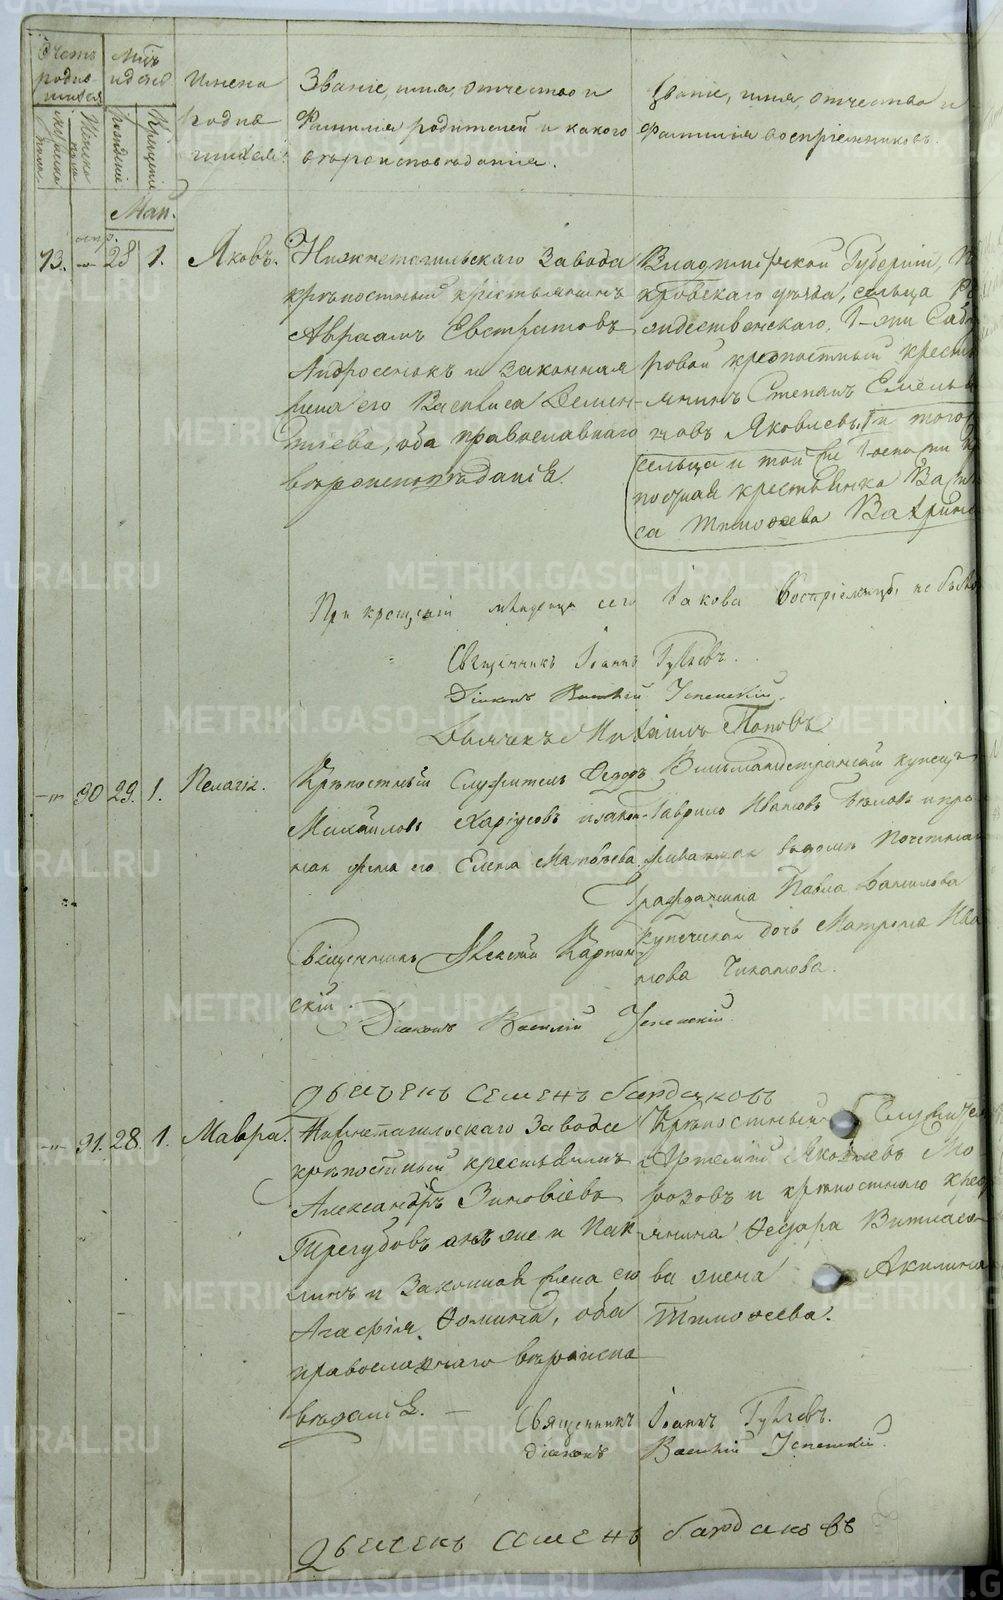 Счетъ родив-шихся
мужеска пола
женска пола
Мѣс. и дея
рожденіе
крещеніе
Имена родив-шихся.
Званіе, имя, отчество и
фамилія родителей и какого
вѣроисповѣданія.
Званіе, имя, отчество и
фамилія воспріемниковъ.
Маи.
апр.
28 1. Яковъ.
Нижнетагильскаго завода
крѣпостный крестьянинъ
Авраамъ Евстратовъ
и законная
жена его Васвиса Демен-
тіева, оба православнаго
вѣроисповѣданія.
Владимірской Губерніи, По
кровскаго уѣзда, сельца Ро
ждественскаго, Г-жи
ровой крепостный кресть
янинъ Степанъ Емелья
новъ Яковлевъ, и того
сельца и той же Госпожи
крестьянка
са Тимоѳеева
При крещеніи младенца сего Іакова воспріемницы не было
Священникъ Іоаннъ
Діаконъ Василій Успенскій.
Дьячекъ Михаилъ Поповъ
-„- 90 29. 1. Пелагіе.
Крѣпостный служитель Ѳедоръ
Михаиловъ Харіусовъ и закон-
ная жена его Елена Матвѣева
Вильманстранскій купецъ
Гаврило Ивановъ Бѣловъ и про
живающая въ домѣ Почетнаго
Гражданина Павла Данилова
купеческая дочь Матрена Ива
нова Чиканова.
Священникъ Алексѣй Карпин
скій.
Діаконъ Василій Успенскій.
Дьячекъ Семенъ Бардаковъ
-„- 91. 28. 1. Мавра.
Нижнетагильскаго Завода
крѣпостный крестьянинъ
Александръ Зиновіевъ
Трегубовъ онъ же и Пак
линъ и Законная жена его
Агафія Ѳомина, оба
православнаго вѣроиспо
вѣданія.
Крѣпостный Служитель
Артемій Яковлевъ Мо
розовъ и крѣпостнаго крес
янина Ѳедора
ва жена Акилина
Тимоѳеева.
Священникъ Іоаннъ
діаконъ Василій Успенскій.
Дьячекъ Семенъ Бардаковъ
METRIKI.GASO-URAL.RU